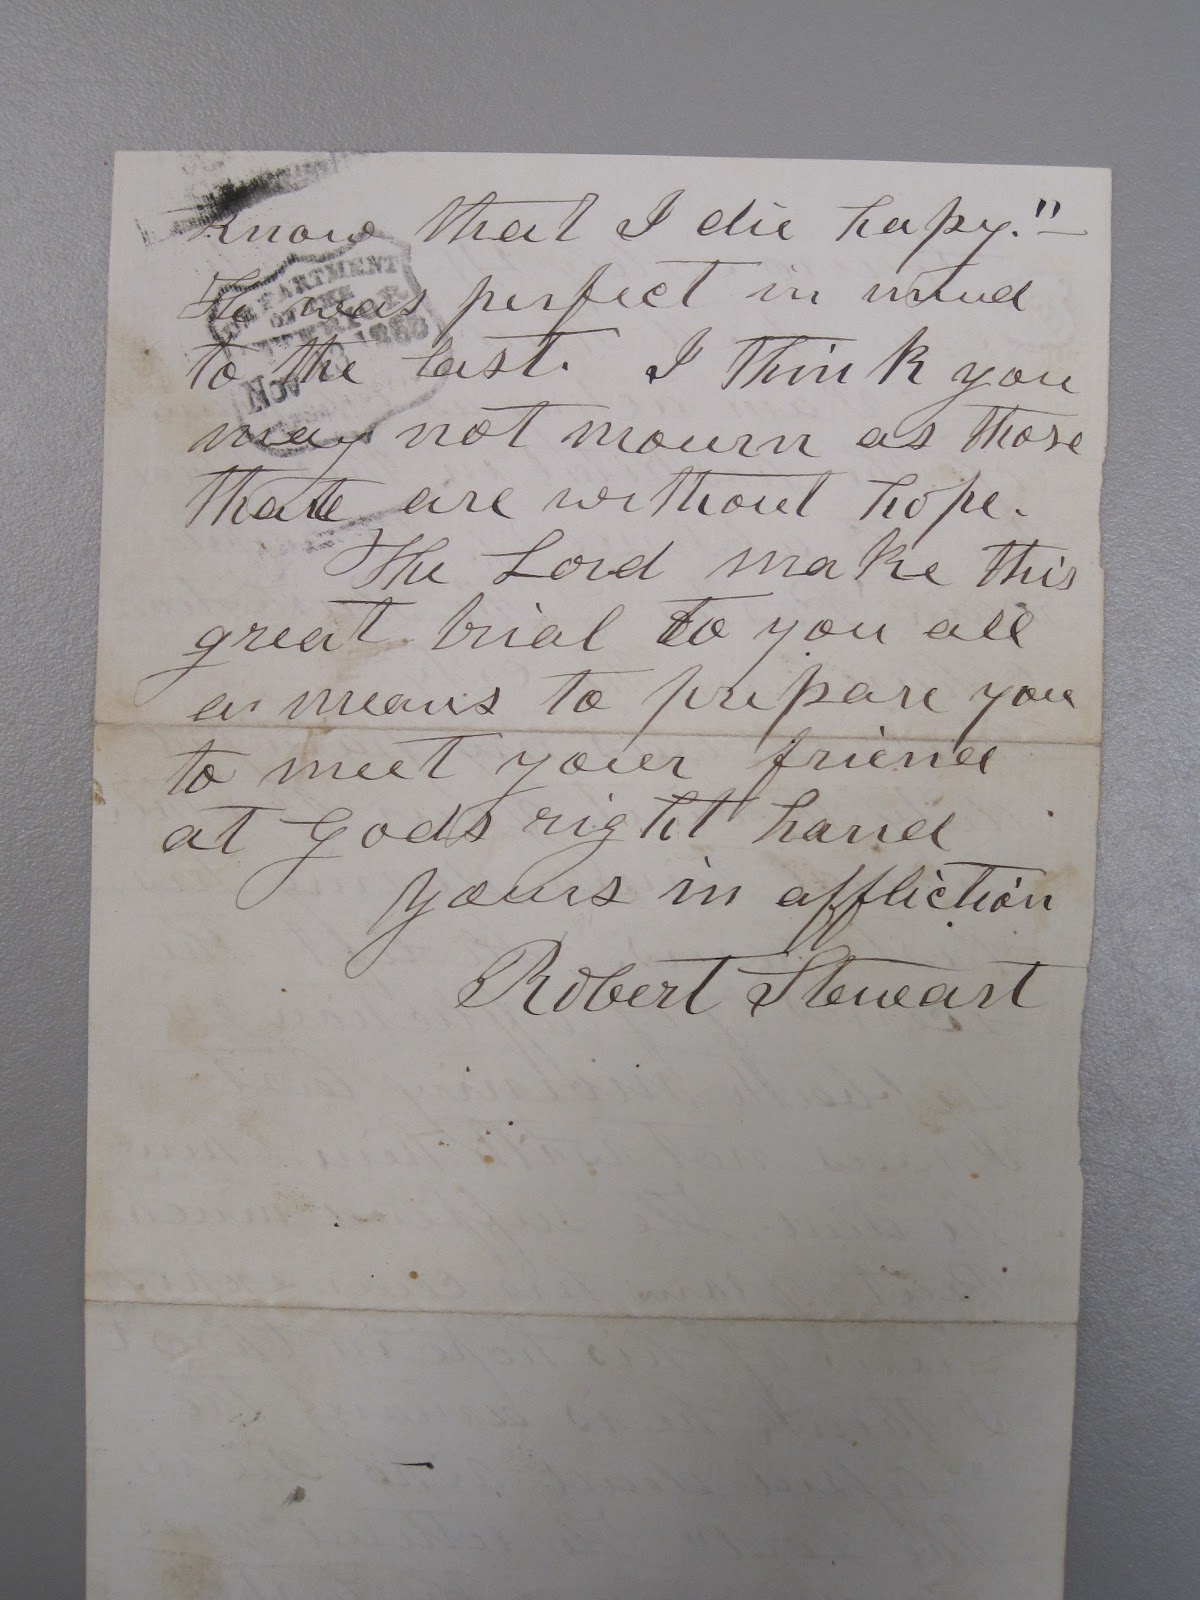 know that I die hapy."—
He was perfect in mind
to the last. I think you
may not mourn as those
that are without hope.
The Lord make this
great trial to you all
a means to prepare you
to meet your friend
at Gods right hand
Yours in affliction
Robert Stewart
DEPARTMENT
OF THE
NOV